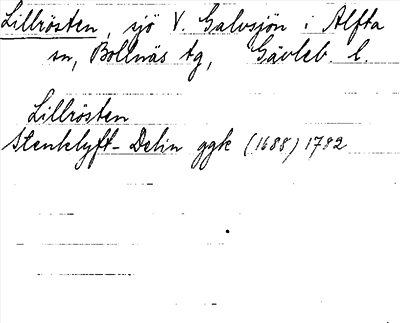 Lillrösten, sjö V. Galvsjön i Alfta
sn, Bollnäs tg, Gävleb. l.
Lillrösten
Stenklyft-Delin ggk (1688) 1782